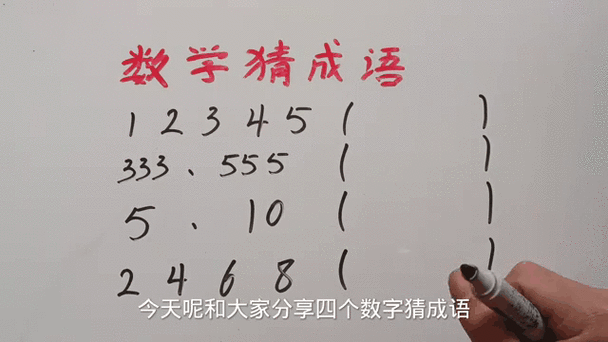 数学猜成语
1 2 3 4 5 (      )
333、555 (      )
5 、 10 (      )
2 4 6 8 (      )
今天呢和大家分享四个数字猜成语